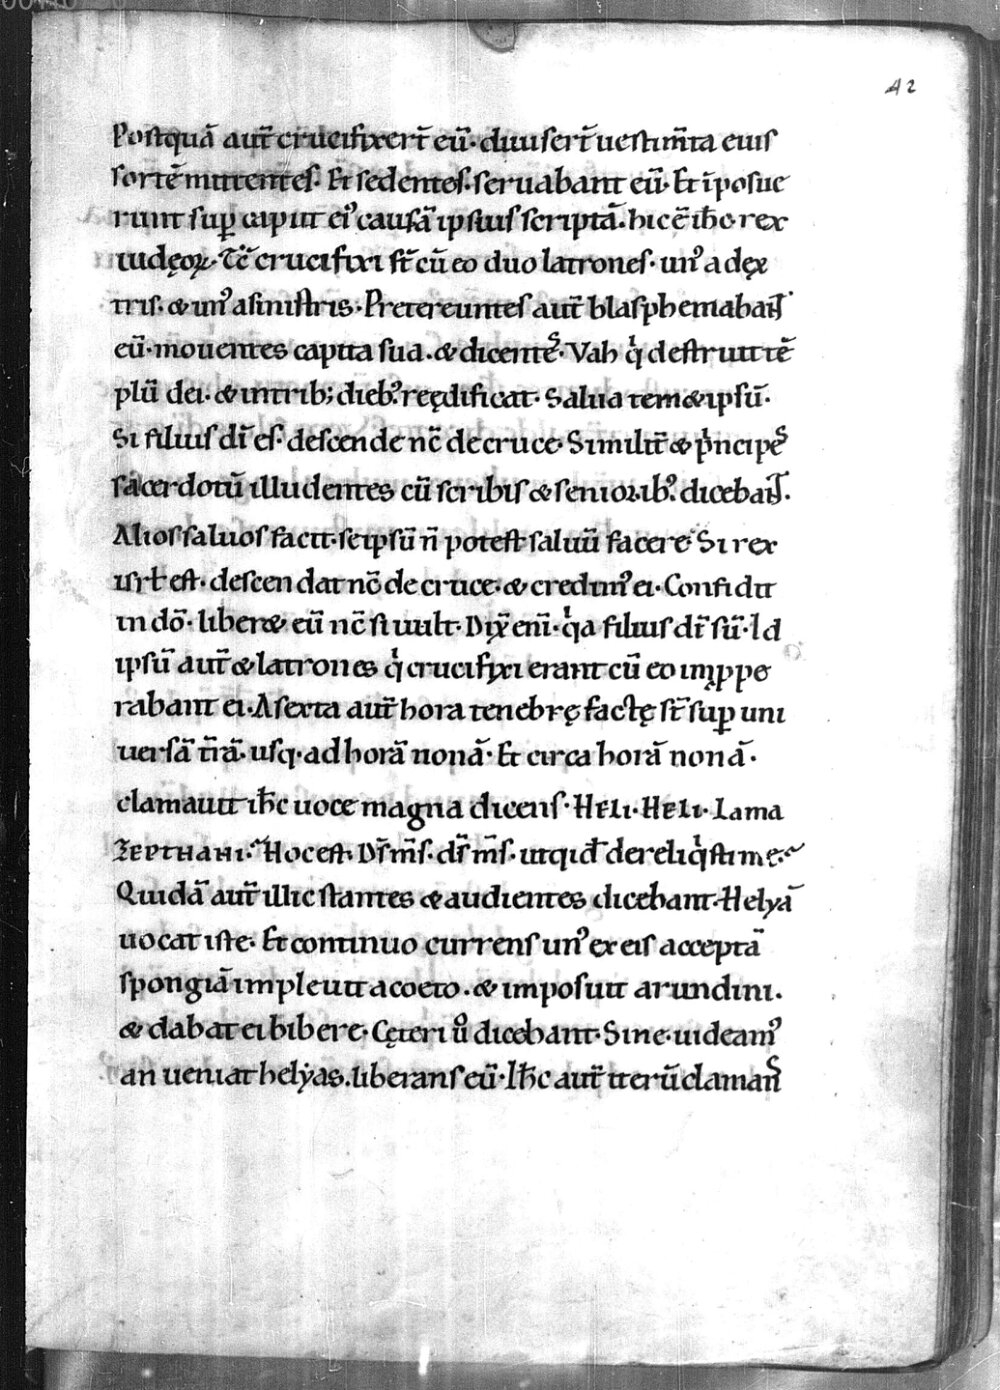 42
Postquā aut̄ crucifixer̄t eū· diuiser̄t uestim̄ta eius
sortē mittentes· Et sedentes· seruabant eū· Et īposue
runt sup̱ caput ei᾽ causā ipsius scriptā· hic ē ih̄c rex
iudęoꝝ· Tc̄ crucifixi st̄ cū eo duo latrones· un᾽ a dęx
tris· & un᾽ a sinistris· Pretereuntes aut̄ blasphemabant
eū· mouentes capita sua· & dicentes· Vah q̇ destruit tē
plū dei· & in trib; dieb᾽ reędificat· Salua temetipsū·
Si filius dī es· descende nc̄ de cruce· Similit̄ & ṗncipes
sacerdotū illudentes cū scribis & seniorib᾽ dicebant·
Alios saluos facit· seipsū n̄ potest saluū facere· Si rex
isrł est· descendat nc̄ de cruce· & credim᾽ ei· Confidit
in dō· liberet eū nc̄ si uult· Dix̄ enī· q̇a filius dī sū· Id
ipsū aut̄ & latrones q̇ crucifixi erant cū eo imp̱pe
rabant ei· A sexta aut̄ hora tenebrę factę st̄ sup̱ uni
uersā t̄rā· usq· ad horā nonā· Et circa horā nonā·
clamauit ih̄c uoce magna dicens· Heli· Heli· Lama
Zepthani· Hoc est· Dś m̄s· dś m̄s· utqid dereliq̇sti me·
Quidā aut̄ illic stantes & audientes dicebant· Helyā
uocat iste· Et continuo currens un᾽ ex eis acceptā
spongiā impleuit acoeto· & imposuit arundini·
& dabat ei bibere· Cęteri u̇ dicebant· Sine· uideam᾽
an ueniat helyas· liberans eū· Ih̄c aut̄ iterū clamans